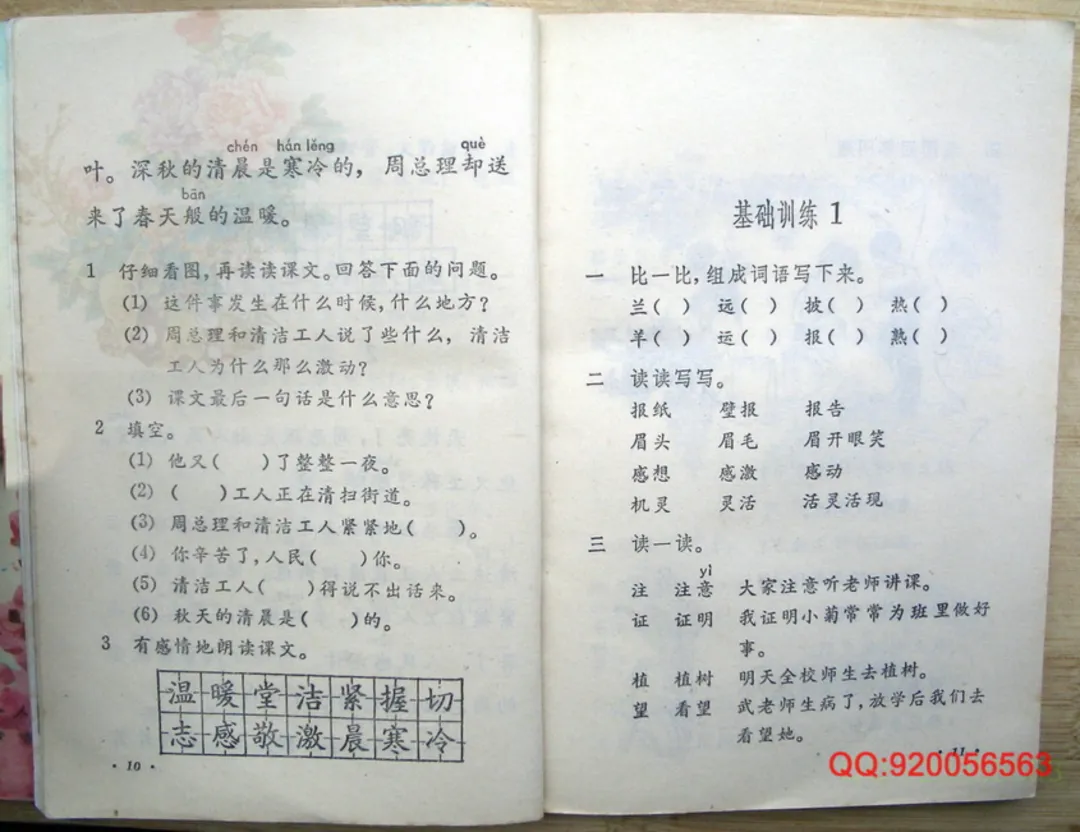 chén hán lěng què
叶。深秋的清晨是寒冷的，周总理却送
bān
来了春天般的温暖。
1 仔细看图，再读读课文。回答下面的问题。
(1) 这件事发生在什么时候，什么地方？
(2) 周总理和清洁工人说了些什么，清洁
工人为什么那么激动？
(3) 课文最后一句话是什么意思？
2 填空。
(1) 他又(　　)了整整一夜。
(2) (　　)工人正在清扫街道。
(3) 周总理和清洁工人紧紧地(　　)。
(4) 你辛苦了，人民(　　)你。
(5) 清洁工人(　　)得说不出话来。
(6) 秋天的清晨是(　　)的。
3 有感情地朗读课文。
温暖堂洁紧握切
志感敬激晨寒冷
·10·
基础训练1
一 比一比，组成词语写下来。
兰(　) 远(　) 披(　) 热(　)
羊(　) 运(　) 报(　) 熟(　)
二 读读写写。
报纸 壁报 报告
眉头 眉毛 眉开眼笑
感想 感激 感动
机灵 灵活 活灵活现
三 读一读。
yì
注 注意 大家注意听老师讲课。
证 证明 我证明小菊常常为班里做好
事。
植 植树 明天全校师生去植树。
望 看望 武老师生病了，放学后我们去
看望她。
·11·
QQ:920056563